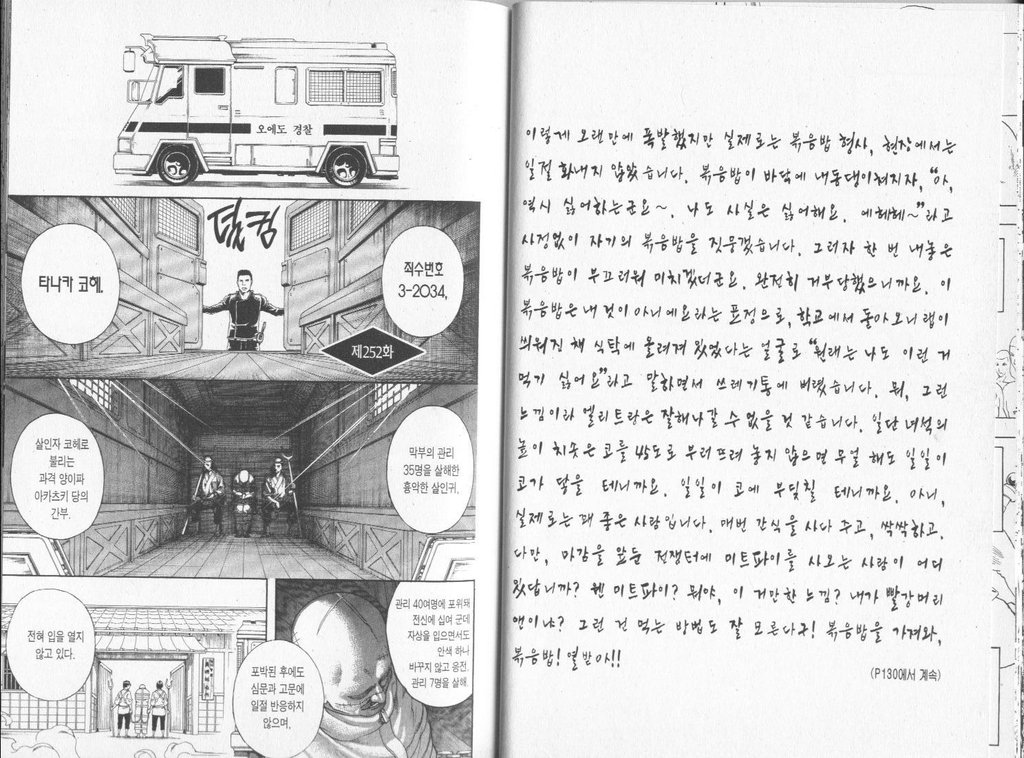 오에도 경찰
덜컹
죄수번호
3-2034,
타나카 코헤.
제252화
막부의 관리
35명을 살해한
흉악한 살인귀.
살인자 코헤로
불리는
과격 양이파
아카츠키 당의
간부.
관리 40여명에 포위돼
전신에 십여 군데
자상을 입으면서도
안색 하나
바꾸지 않고 응전.
관리 7명을 살해.
포박된 후에도
심문과 고문에
일절 반응하지
않으며,
전혀 입을 열지
않고 있다.
이렇게 오랜만에 폭발했지만 실제로는 볶음밥 형사, 현장에서는
일절 화내지 않았습니다. 볶음밥이 바닥에 내동댕이쳐지자, "아,
역시 싫어하는군요~. 나도 사실은 싫어해요. 에헤헤~"라고
사정없이 자기의 볶음밥을 짓뭉갰습니다. 그러자 한 번 내놓은
볶음밥이 부끄러워 미치겠더군요. 완전히 거부당했으니까요. 이
볶음밥은 내 것이 아니에요라는 표정으로, 학교에서 돌아오니 랩이
씌워진 채 식탁에 올려져 있었다는 얼굴로 "원래는 나도 이런 거
먹기 싫어요"라고 말하면서 쓰레기통에 버렸습니다. 뭐, 그런
느낌이라 엘리트란은 잘해나갈 수 없을 것 같습니다. 일단 녀석의
높이 치솟은 코를 45도로 부러뜨려 놓지 않으면 무얼 해도 일일이
코가 닿을 테니까요. 일일이 코에 부딪칠 테니까요. 아니,
실제로는 꽤 좋은 사람입니다. 매번 간식을 사다 주고, 싹싹하고.
다만, 마감을 앞둔 전쟁터에 미트파이를 사오는 사람이 어디
있답니까? 웬 미트파이? 뭐야, 이 거만한 느낌? 내가 빨강머리
앤이냐? 그런 건 먹는 방법도 잘 모른다구! 볶음밥을 가져와,
볶음밥! 열받아!!
(P130에서 계속)